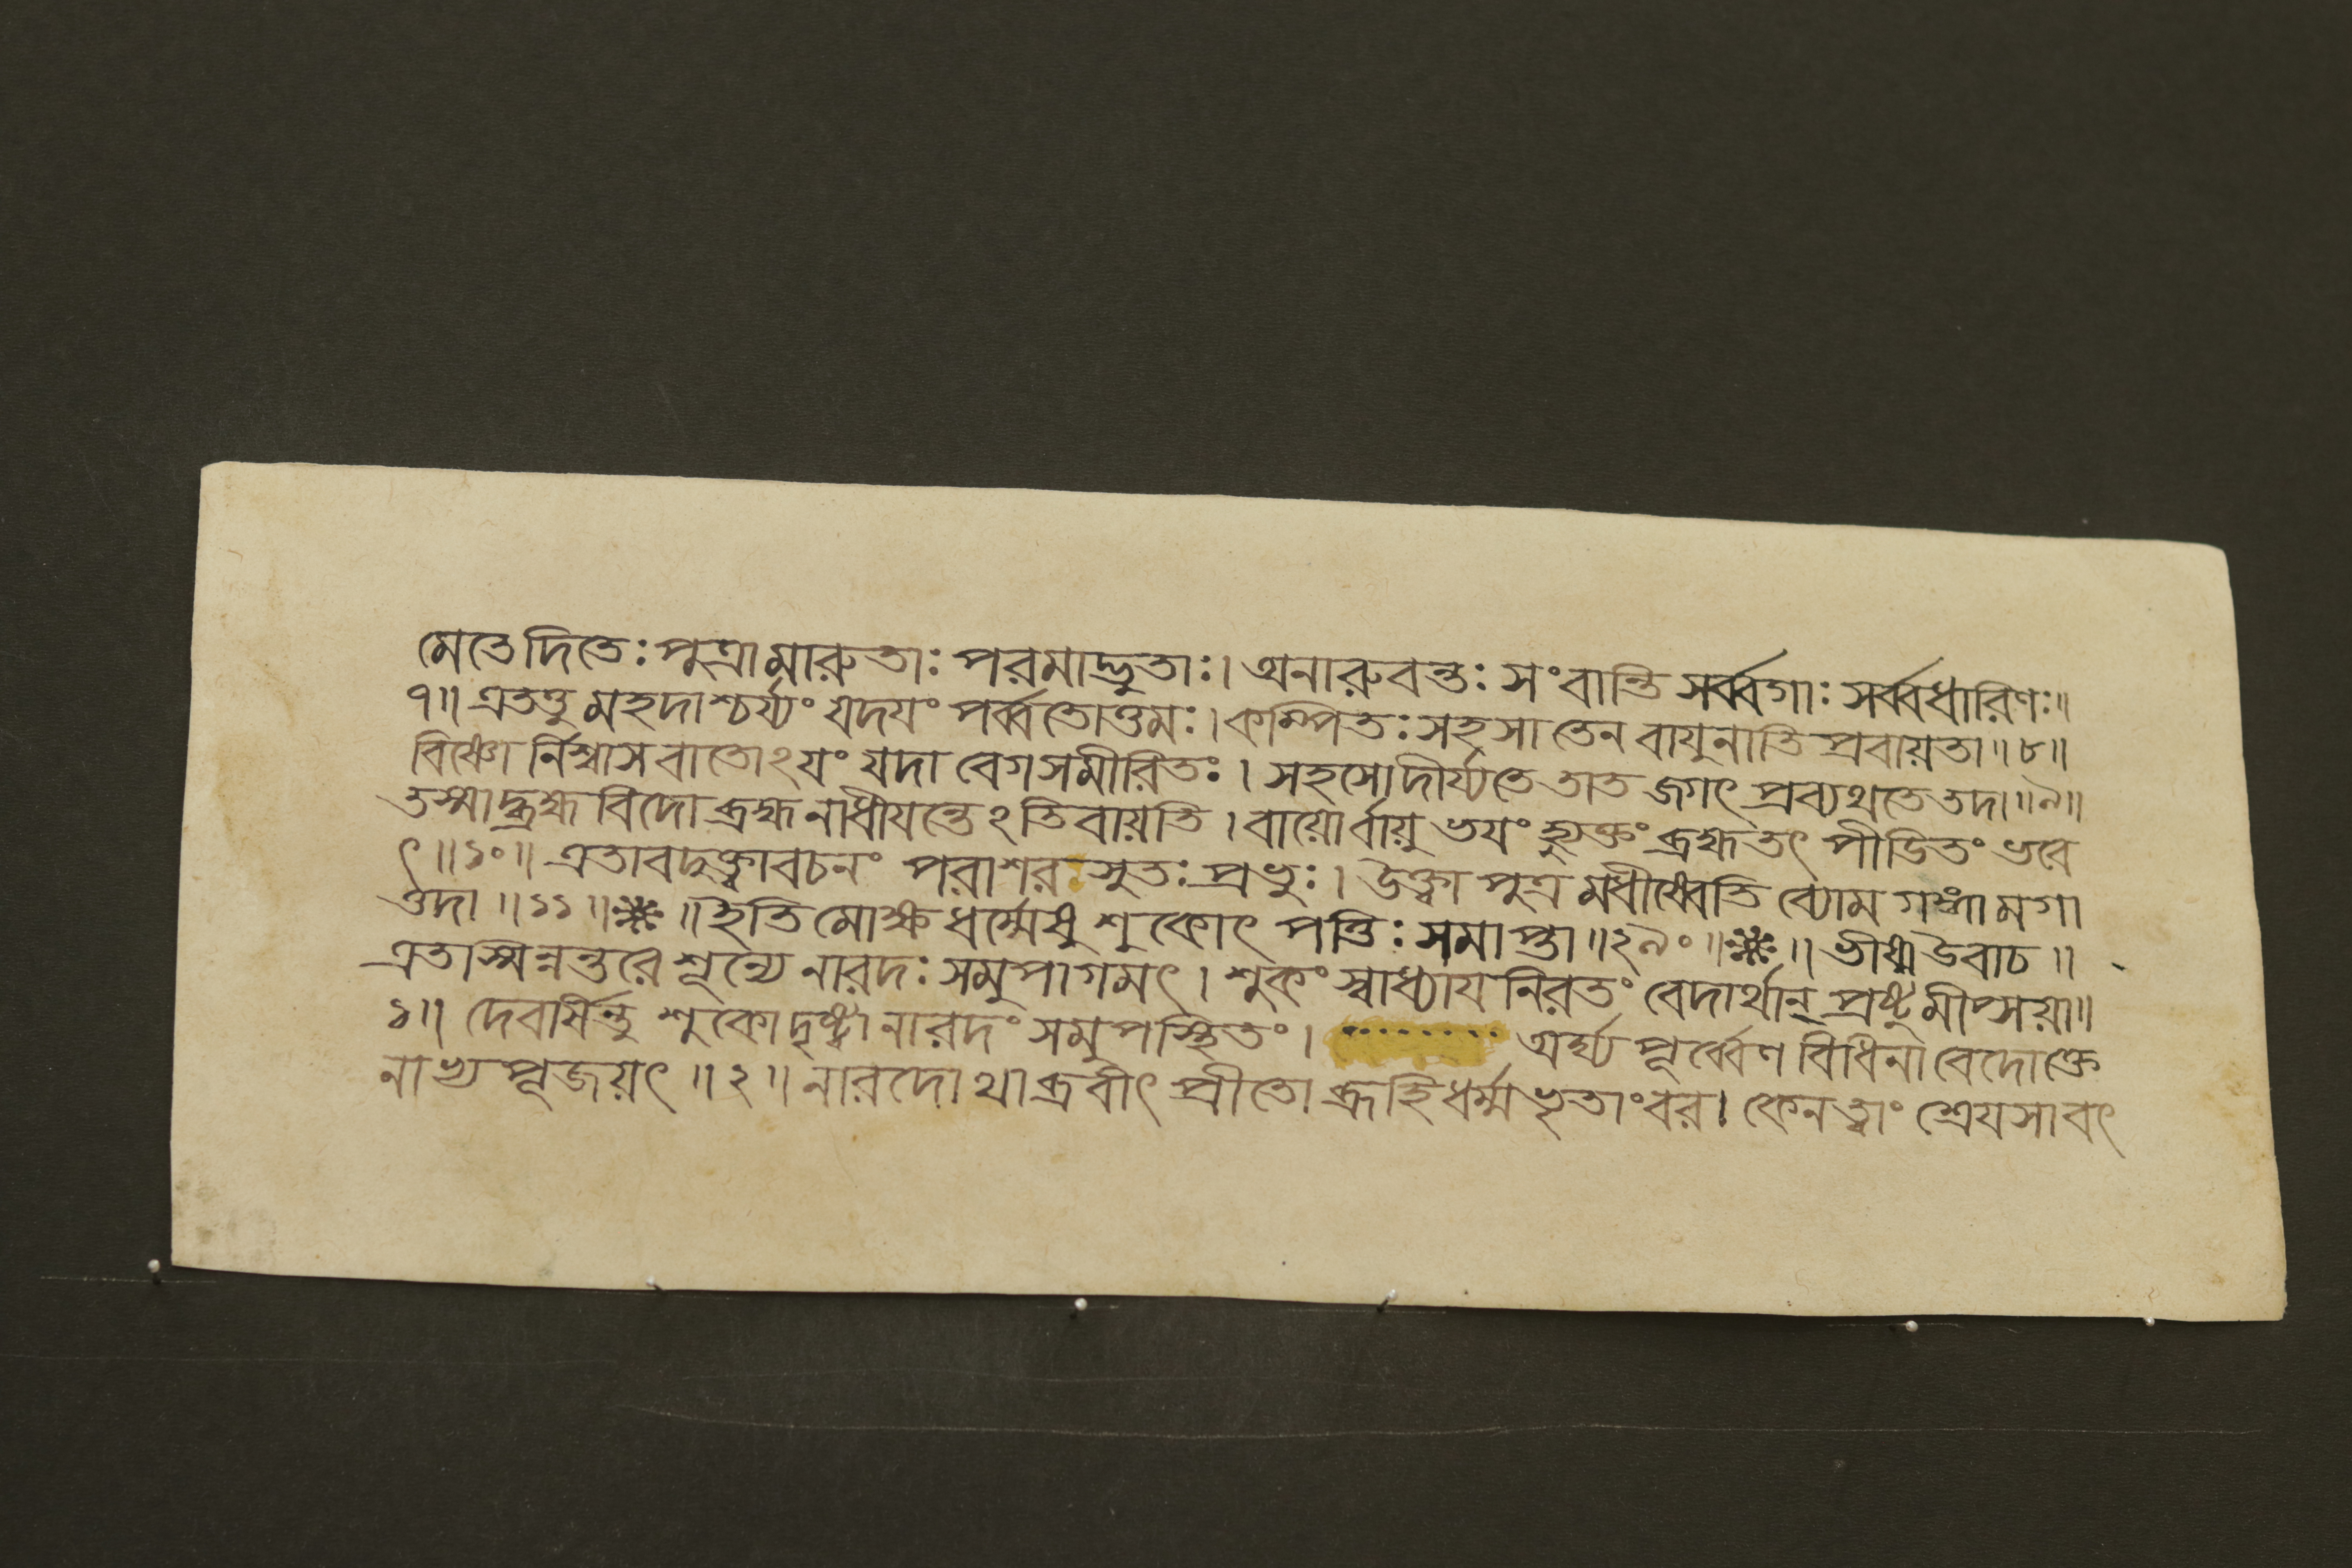 মেতেদিতেঃ পুত্রামারুতাঃ পরমাদ্ভুতাঃ। অনারুবন্তঃ সংবান্তি সর্ব্বগাঃ সর্ব্বধারিণঃ॥
৭॥ এতত্তু মহদাশ্চর্য্যং যদয়ং পর্ব্বতোত্তমঃ। কম্পিতঃ সহসা তেন বায়ুনাতি প্রবায়তা॥৮॥
বিষ্ণো র্নিশ্বাসবাতোঽয়ং যদা বেগসমীরিতঃ। সহসোদীর্য্যতে তাত জগৎ প্রব্যথতে তদা॥৯॥
তস্মাদ্ব্রহ্মবিদো ব্রহ্ম নাধীয়ন্তেঽতিবায়তি। বায়োর্বায়ুভয়ং হ্যুক্তং ব্রহ্ম তৎ পীডিতং ভবে
ৎ॥১০॥ এতাবদুক্ত্বাবচনং পরাশরসুতঃ প্রভুঃ। উক্ত্বা পুত্রমধীষ্বেতি ব্যোম গঙ্গামগা
ত্তদা॥১১॥❈॥ইতি মোক্ষধর্ম্মেষু শুকোৎপত্তিঃ সমাপ্তা॥২৯০॥❈॥ ভীষ্ম উবাচ॥
এতাস্মিন্নন্তরে শূন্যে নারদঃ সমুপাগমৎ। শুকং স্বাধ্যায়নিরতং বেদার্থান্ প্রষ্টুমীপ্সয়া॥
১॥ দেবর্ষিন্তু শুকোদৃষ্ট্বা নারদং সমুপস্থিতং। অর্ঘ্য পূর্ব্বেণ বিধিনা বেদোক্তে
নাভ্য পূজয়ৎ॥২॥ নারদোথাব্রবীৎ প্রীতো ব্রূহি ধর্ম্মভৃতাংবর। কেন ত্বাং শ্রেয়সাবৎ